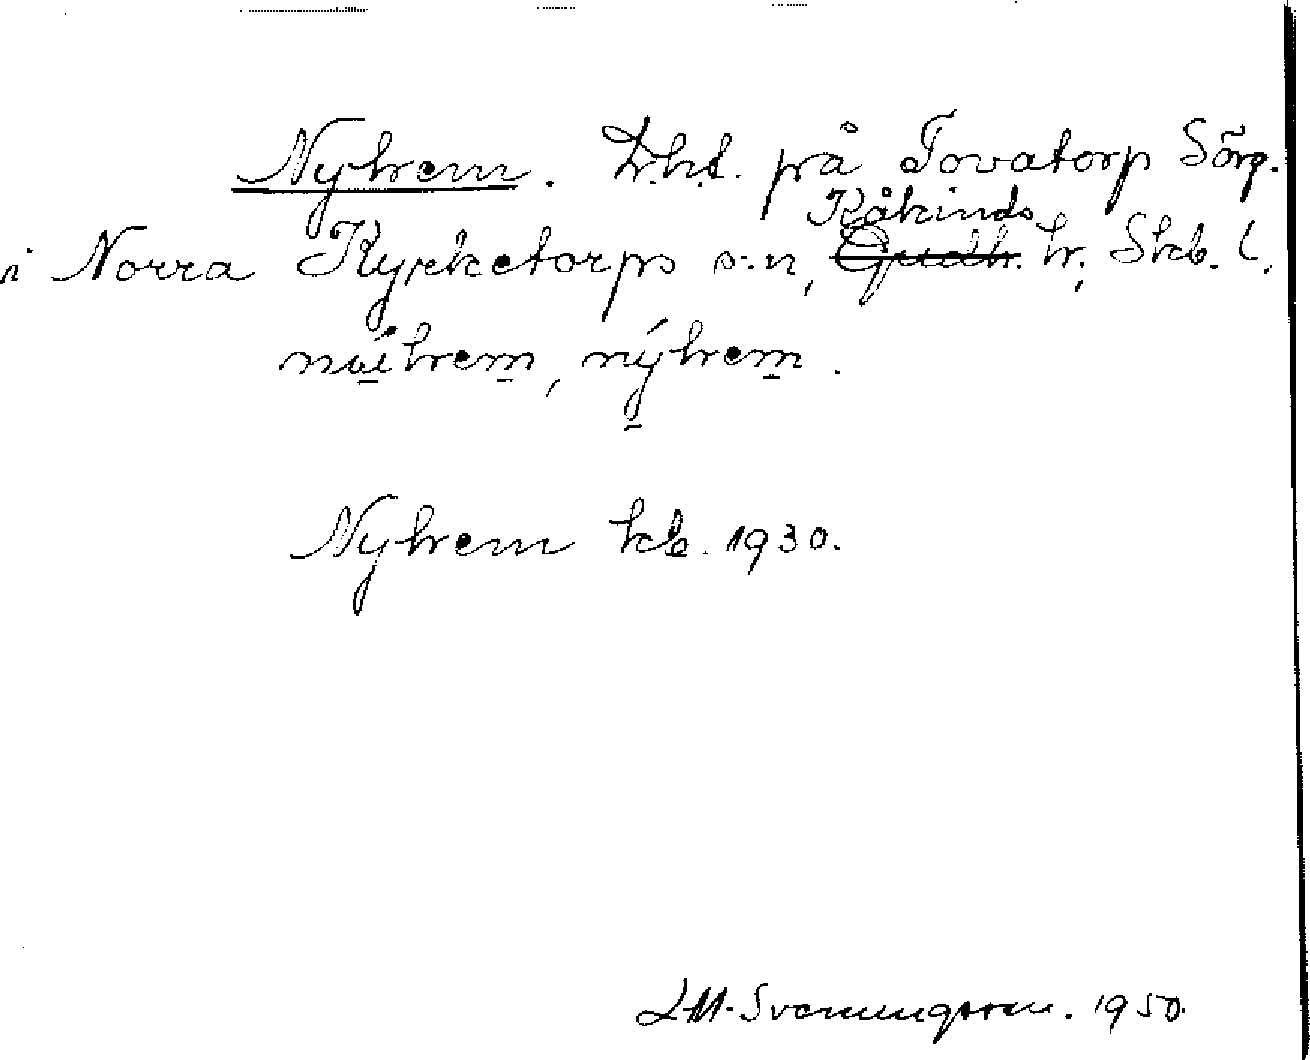 Nyhem. Lht. på Tovatorp Sörg.
Kåkinds
i Norra Kyrketorps s:n, Gudh. hr, Skb. l.
nýhem.
Nyhem kb. 1930.
LM. Svenungsson. 1950.